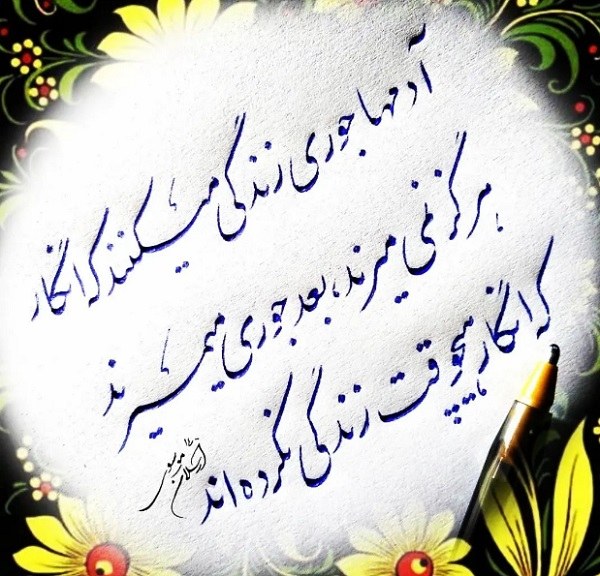 آدمها جوری زندگی میکنند که انگار
هرگز نمی میرند، بعد جوری میمیرند
که انگار هیچوقت زندگی نکرده اند
ارسلان موسوی